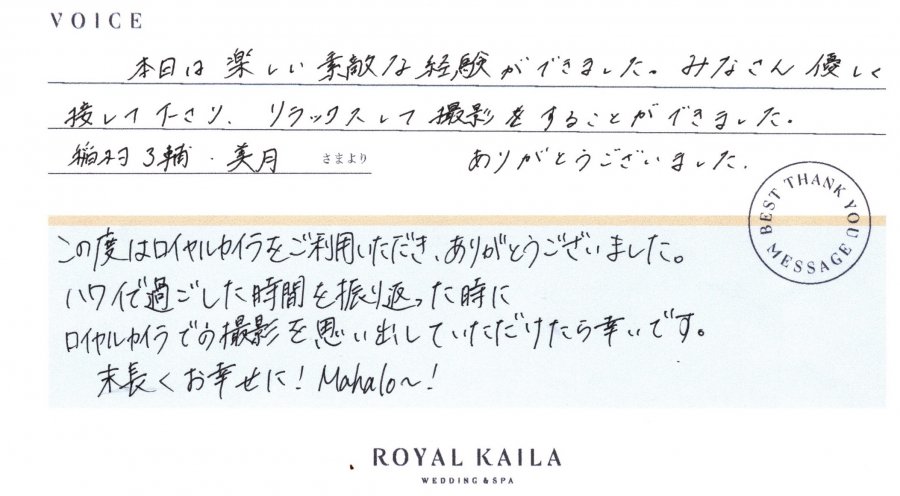 VOICE
本日は楽しい素敵な経験ができました。みなさん優しく
接して下さり、リラックスして撮影をすることができました。
稲村 了輔・美月 さまより ありがとうございました。
BEST THANK YOU MESSAGE
この度はロイヤルカイラをご利用いただき、ありがとうございました。
ハワイで過ごした時間を振り返った時に
ロイヤルカイラでの撮影を思い出していただけたら幸いです。
末長くお幸せに! Mahalo~!
ROYAL KAILA
WEDDING & SPA